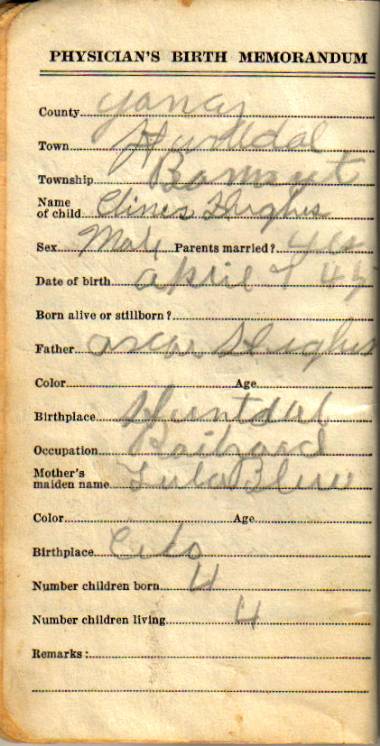 PHYSICIAN'S BIRTH MEMORANDUM
County yancy
Town Huntdal
Township
Name of child Hughes
Sex Male Parents married? yes
Date of birth April 45
Born alive or stillborn?
Father oscar Hughes
Color Age
Birthplace Huntdal
Occupation Railroad
Mother's maiden name Lula
Color Age
Birthplace
Number children born 4
Number children living 4
Remarks: